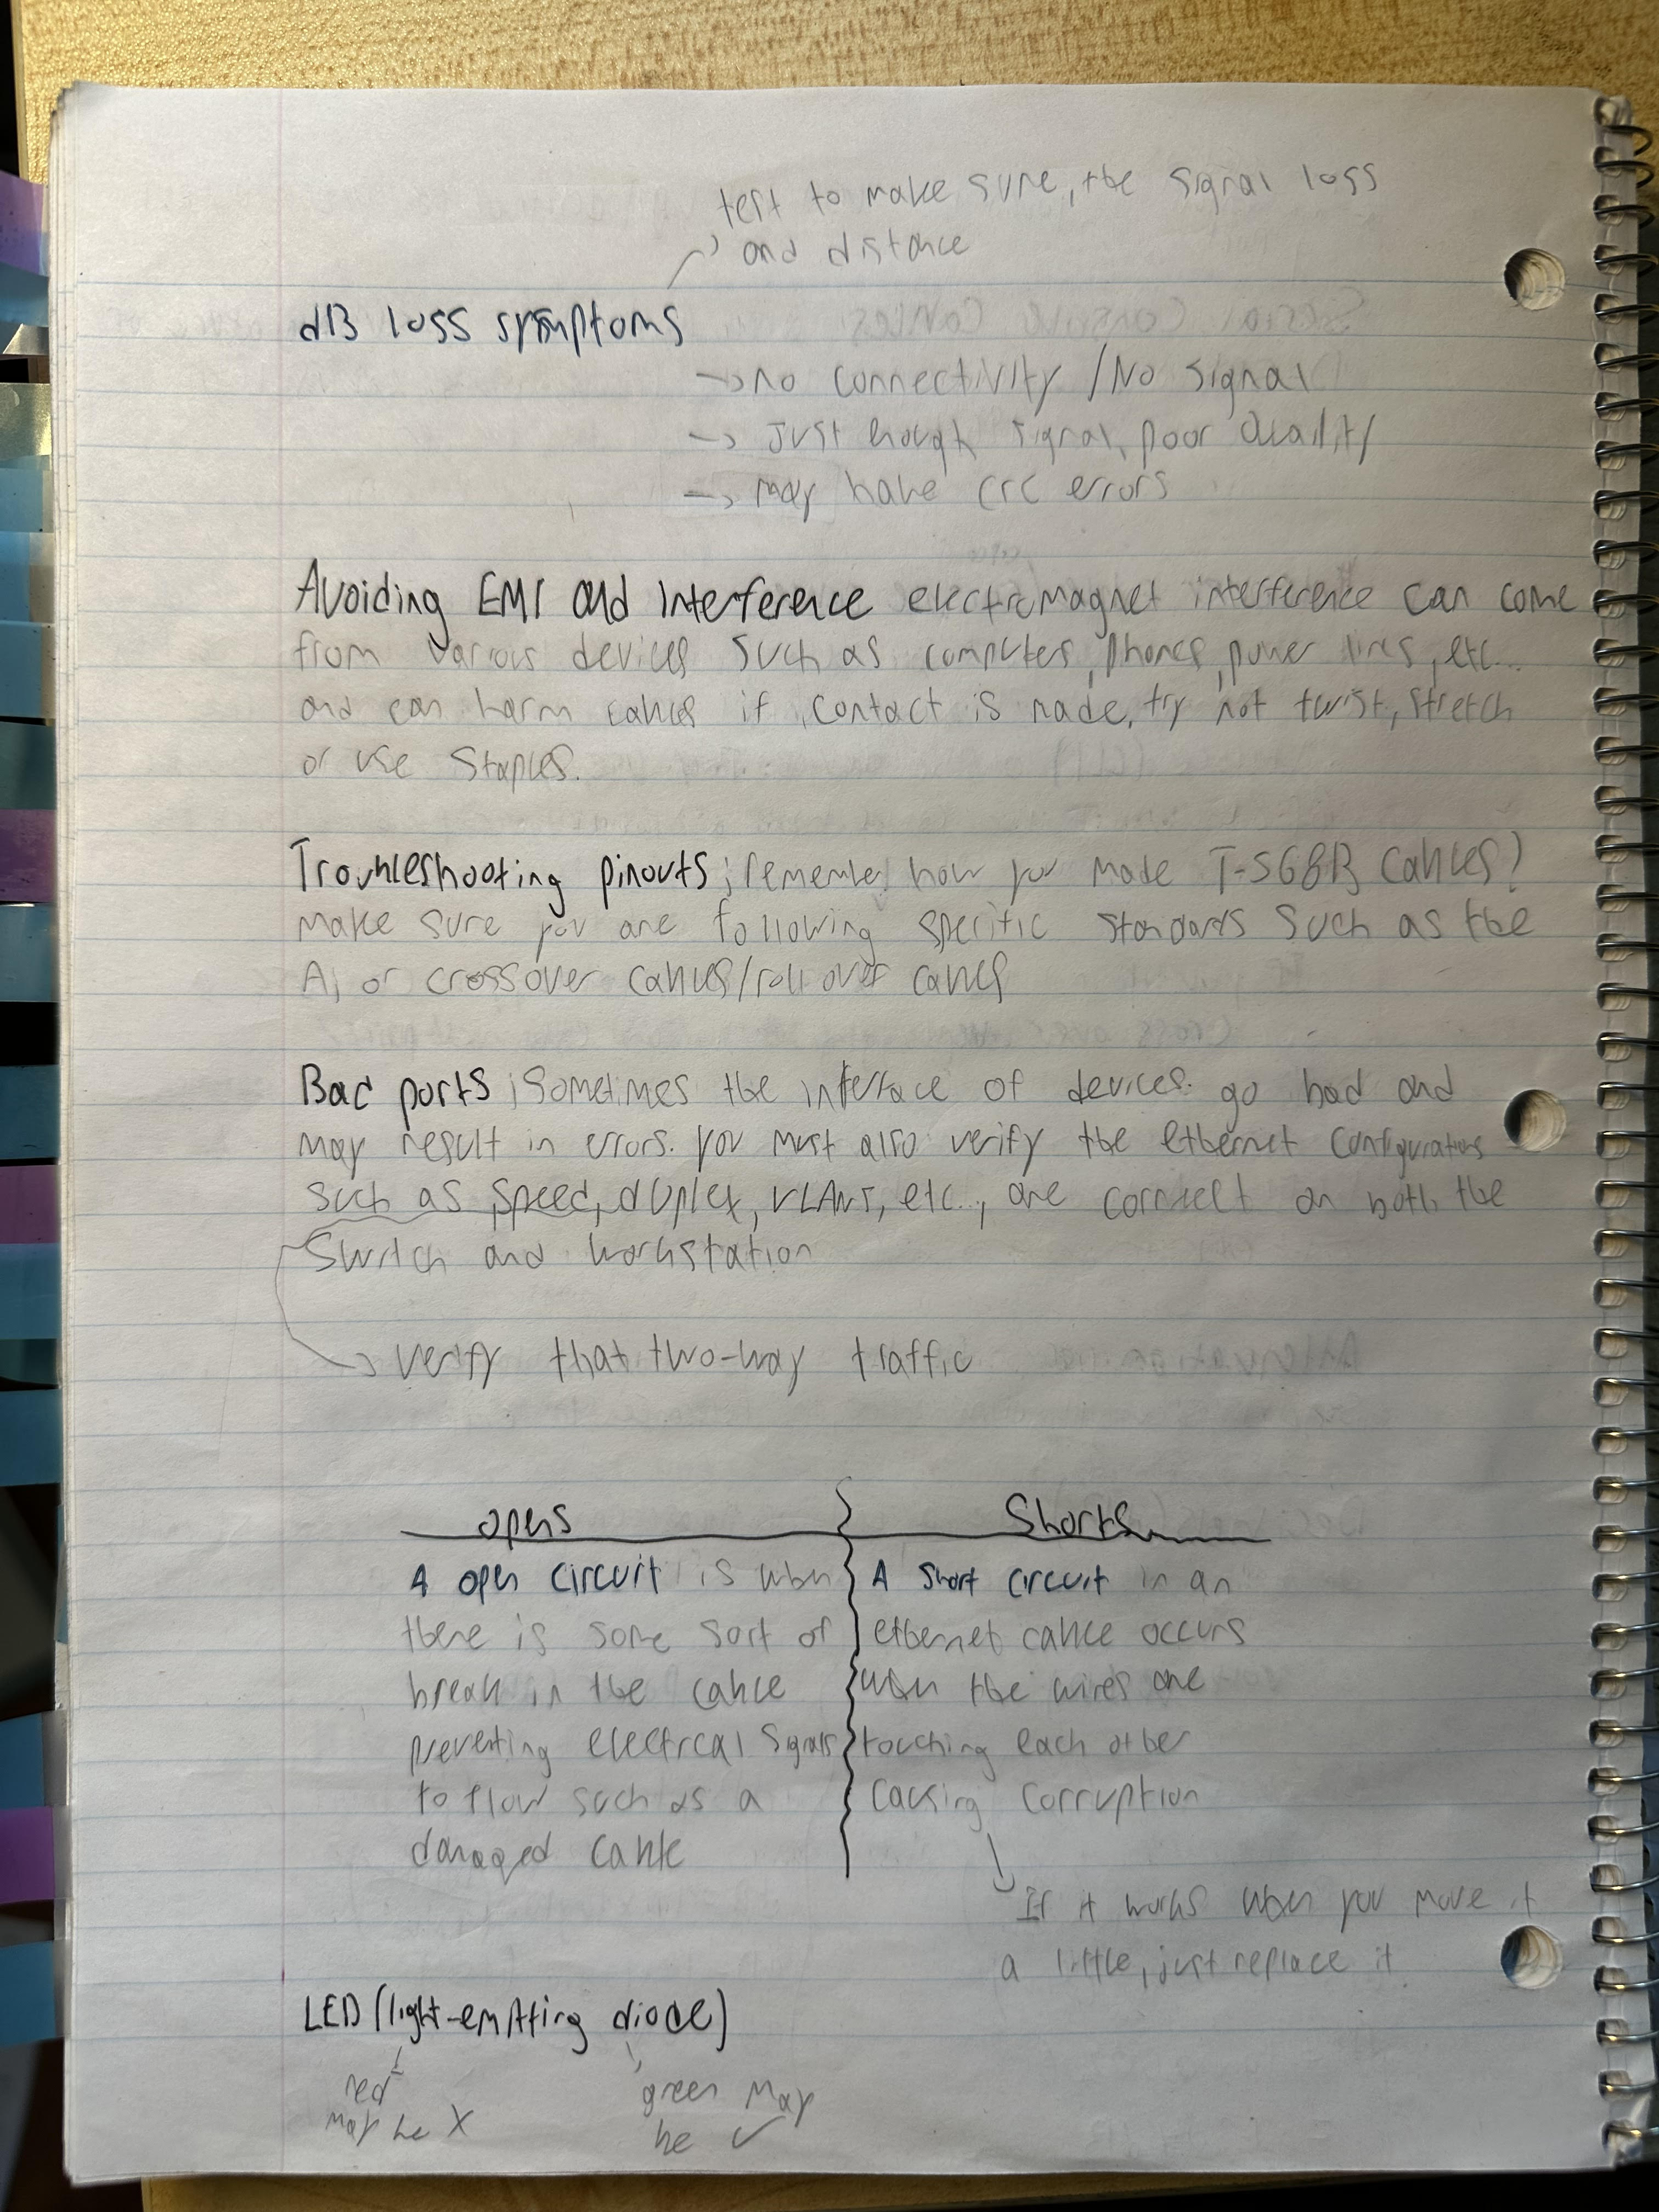 test to make sure, the signal loss
and distance
dB loss symptoms
→ no connectivity / No signal
→ Just enough signal, poor Quality
→ may have crc errors
Avoiding EMI and Interference electromagnet interference can come
from various devices such as computers, phones, power lines, etc...
and can harm cables if contact is made, try not twist, stretch
or use staples.
Troubleshooting pinouts; remember how you made T-568B cables?
Make sure you are following specific standards such as the
A, or crossover cables/rollover cables
Bad ports; Sometimes the interface of devices go bad and
may result in errors. you must also verify the ethernet configurations
such as speed, duplex, VLANs, etc..., are correct on both the
Switch and workstation
→ verify that two-way traffic
opens
Shorts
A open circuit is when
there is some sort of
break in the cable
preventing electrcal signals
to flow such as a
damaged cable
A short circuit in an
ethernet cable occurs
when the wires are
touching each other
causing corruption
If it works when you move it
a little, just replace it
LED (light-emitting diode)
red
may be X
green may
be ✓